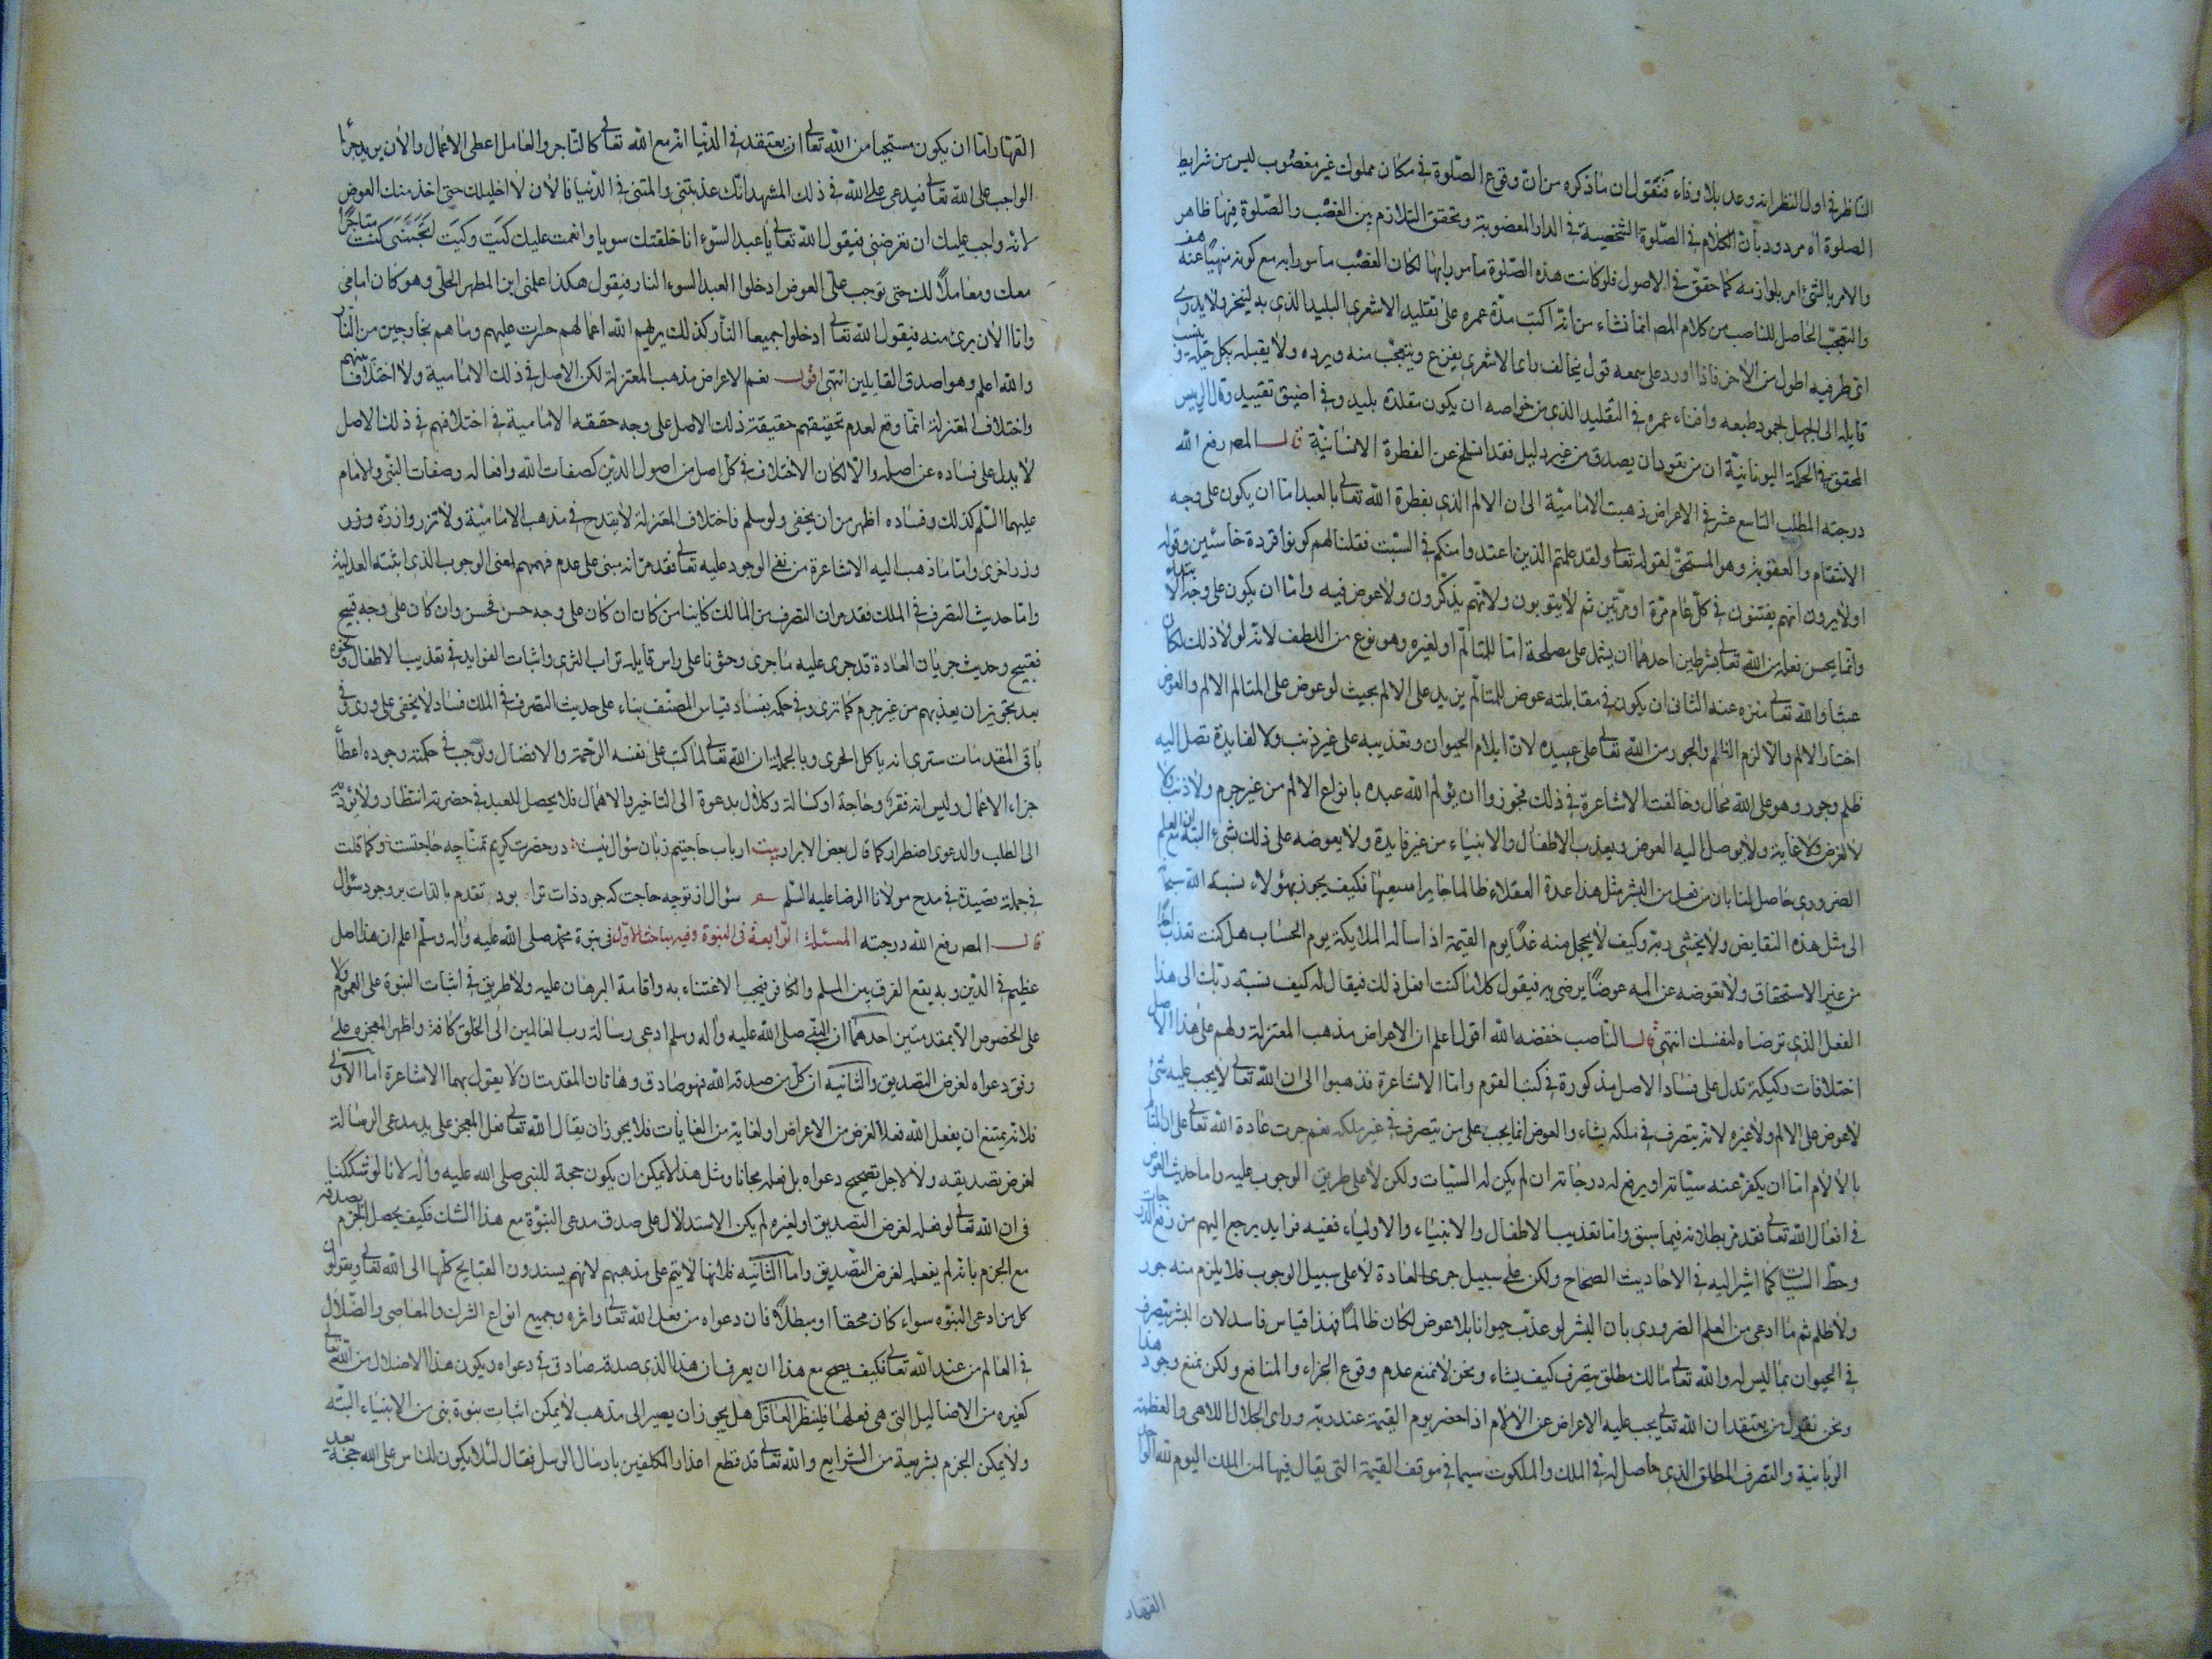 الناظر في اول النظر انه وعد بلا وفاء فنقول ان ما ذكره من ان وقوع الصلوة في مكان مملوك غير مغصوب ليس من شرايط
الصلوة اه مردود بان الكلام في الصلوة الشخصية في الدار المغصوبة وتحقق التلازم بين الغصب والصلوة فيها ظاهر
والامر بالشئ امر بلوازمه كما حقق في الاصول فلو كانت هذه الصلوة مامورا بها لكان الغصب مامورا به مع كونه منهيا عنه هف
والتعجب الحاصل للناصب من كلام المصه انما نشاء من انه اكب مدة عمره على تقليد الاشعري البليد الذي لا يدرى
اي طرفيه اطول من الاخر فاذا اورد على سمعه قول يخالف راى الاشعري يفزع ويتعجب منه ويرده ولا يقبله بكل حيلة وينسب
قايله الى الجهل لجمود طبعه وافناء عمره في التقليد الذي من خواصه ان يكون مقلده بليد وفي اضيق تقييد وقال الريس
المحقق في الحكمة اليونانية ان من تعود ان يصدق من غير دليل فقد انسلخ عن الفطرة الانسانية قال المصه رفع الله
درجته المطلب التاسع عشر في الاعراض ذهبت الامامية الى ان الالم الذي يفعله الله تعالى بالعبد اما ان يكون على وجه
الانتقام والعقوبة وهو المستحق لقوله تعالى ولقد علمتم الذين اعتدوا منكم في السبت فقلنا لهم كونوا قردة خاسئين وقوله
اولا يرون انهم يفتنون في كل عام مرة او مرتين ثم لا يتوبون ولا هم يذكرون ولا عوض فيه واما ان يكون على وجه الابتداء
وانما يحسن فعله من الله تعالى بشرطين احدهما ان يشتمل على مصلحة اما للمتالم او لغيره وهو نوع من اللطف لانه لولا ذلك لكان
عبثا والله تعالى منزه عنه الثاني ان يكون في مقابلته عوض للمتالم يزيد على الالم بحيث لو عوض على المتالم الالم والعوض
اختار الالم والا لزم الظلم والجور من الله تعالى على عبيده لان ايلام الحيوان وتعذيبه على غير ذنب ولا لفايدة تصل اليه
ظلم وجور وهو على الله محال وخالفت الاشاعرة في ذلك فجوزوا ان يولم الله عبده بانواع الالم من غير جرم ولا ذنب ولا
لغرض ولا غاية ولا يوصل اليه العوض ويعذب الاطفال والانبياء من غير فايدة ولا يعوضه على ذلك بشئ البتة مع ان العلم
الضروري حاصل لنا بان من فعل من البشر مثل هذا عده العقلاء ظالما جايرا سفيها فكيف يجوز هؤلاء نسبة الله سبحانه
الى مثل هذه النقايض ولا يخشى ربه وكيف لا يخجل منه غدا يوم القيمة اذا ساله الملايكة يوم الحساب هل كنت تعذب احدا
من غير الاستحقاق ولا تعوضه عن المه عوضا يرضى به فيقول كلا ما كنت افعل ذلك فيقال له كيف نسبت ربك الى هذا
الفعل الذي لم ترضاه لنفسك انتهى قال الناصب خفضه الله اقول اعلم ان الاعراض مذهب المعتزلة ولهم على هذا الاصل
اختلافات ركيكة تدل على فساد الاصل مذكورة في كتب القوم واما الاشاعرة فذهبوا الى ان الله تعالى لا يجب عليه شئ
لا عوض على الالم ولا غيره لانه يتصرف في ملكه يشاء والعوض انما يجب على من يتصرف في غير ملكه نعم جرت عادة الله تعالى على ان المتالم
بالالام اما ان يكفر عنه سيئاته او يرفع له درجاته ان لم يكن له السيئات ولكن لا على طريق الوجوب عليه واما حديث العوض
في افعال الله تعالى فقد مر بطلانه فيما سبق واما تعذيب الاطفال والانبياء والاولياء ففيه فوايد يرجع اليهم من رفع الدرجات
وحط السيئات كما اشير اليه في الاحاديث الصحاح ولكن على سبيل جرى العادة لا على سبيل الوجوب فلا يلزم منه جور
ولا ظلم ثم ما ادعى من العلم الضروري بان البشر لو عذب حيوانا بلا عوض لكان ظالما فهذا قياس فاسد لان البشر يتصرف
في الحيوان بما ليس له والله تعالى مالك مطلق يتصرف كيف يشاء ونحن لا نمنع عدم وقوع الجزاء والمنافع ولكن نمنع وجوب هذا
ونحن نقول من يعتقد ان الله تعالى يجب عليه الاعراض عن الالام اذا حضر يوم القيمة عند ربه وراى الجلال الالهي والعظمة
الربانية والتصرف المطلق الذي حاصل له في الملك والملكوت سيما في موقف القيمة التي يقال فيها لمن الملك اليوم لله الواحد
القهار
القهار اما ان يكون مستحيا من الله تعالى ان يعتقد في الدنيا انه مع الله تعالى كالتاجر والعامل اعطى الاعمال والان يريد جزاء
الواجب على الله تعالى فيدعى على الله في ذلك المشهد انك عذبتنى والمتنى في الدنيا فالان لا اخليك حتى اخذ منك العوض
لانه واجب عليك ان تعوضنى فيقول الله تعالى يا عبد السوء انا خلقتك سويا وانعمت عليك كيت وكيت اتحسبنى كنت متاجرا
معك ومعاملا لك حتى توجب على العوض ادخلوا العبد السوء النار فيقول هكذا علمنى ابن المطهر الحلى وهو كان امامى
وانا الان برئ منه فيقول الله تعالى ادخلوا جميعا النار كذلك يريهم الله اعمالهم حسرات عليهم وما هم بخارجين من النار
والله اعلم وهو اصدق القايلين انتهى اقول نعم الاعراض مذهب المعتزلة لكن الاصل في ذلك الامامية ولا اختلاف بينهم
واختلاف المعتزلة انما وقع لعدم تحقيقهم حقيقة ذلك الاصل على وجه حققه الامامية في اختلافهم في ذلك الاصل
لا يدل على فساده عن اصله والا لكان الاختلاف في كل اصل من اصول الدين كصفات الله وافعاله وصفات النبى والامام
عليهما السلم كذلك وفساده اظهر من ان يخفى ولو سلم فاختلاف المعتزلة لا يقدح في مذهب الامامية ولا تزر وازرة وزر
وزر اخرى واما ما ذهب اليه الاشاعرة من نفى الوجود عليه تعالى فقد مر انه مبنى على عدم فهمهم لمعنى الوجوب الذي اثبته العدلية
واما حديث التصرف في الملك فقد مر ان التصرف من المالك كاينا من كان ان كان على وجه حسن فحسن وان كان على وجه قبيح
فقبيح وحديث جريان العادة قد جرى عليه ما جرى وحثونا على راس قايله تراب الثرى واثبات الفوايد في تعذيب الاطفال ونحوه
بعد تجويز ان يعذبهم من غير جرم كما ترى وفي حكمه بفساد قياس المصنف بناء على حديث التصرف في الملك فساد لا يخفى على ورى وفي
باقى المقدمات سترى انه ياكل الخرى وبالجملة ان الله تعالى لما كتب على نفسه الرحمة والافضال وتوجب في حكمته وجوده اعطاء
جزاء الاعمال وليس له فقر وحاجة او كسالة وكلال يدعوه الى التاخير والاهمال فلا يحصل للعبد في حضرته انتظار ولا يؤديه
الى الطلب والدعوى اضطرار كما قال بعض الابرار بيت ارباب حاجتيم زبان سؤال نيست در حضرت كريم تمنا چه حاجتست وكما قلت
في جملة قصيدة في مدح مولانا الرضا عليه السلم شعر سؤال از تو چه حاجت كه جود ذات ترا بود تقدم بالذات بر وجود سؤال
قال المصه رفع الله درجته المسئلة الرابعة في النبوة وفيه مباحث الاول في نبوة محمد صلى الله عليه واله وسلم اعلم ان هذا اصل
عظيم في الدين وبه يقع الفرق بين المسلم والكافر فيجب الاعتناء به واقامة البرهان عليه ولا طريق في اثبات النبوة على العموم ولا
على الخصوص الا بمقدمتين احدهما ان النبى صلى الله عليه واله وسلم ادعى رسالة رب العالمين الى الخلق كافة واظهر المعجزه على
وفق دعواه لغرض التصديق والثانيه ان كل من صدقه الله فهو صادق وهاتان المقدمتان لا يقول بهما الاشاعرة اما الاولى
فلانه يمتنع ان يفعل الله فعلا لغرض من الاعراض او لغاية من الغايات فلا يجوز ان يقال الله تعالى فعل المعجز على يد مدعى الرسالة
لغرض تصديقه ولا لاجل تصحيح دعواه بل فعله مجانا ومثل هذا لا يمكن ان يكون حجة للنبى صلى الله عليه واله لانا لو شككنا
فى ان الله تعالى لو فعله لغرض التصديق او لغيره لم يكن الاستدلال على صدق مدعى النبوة مع هذا الشك فكيف يحصل الجزم بصدقه
مع الجزم بانه لم يفعله لغرض التصديق واما الثانيه فلانها لا يتم على مذهبهم لانهم يسندون القبايح كلها الى الله تعالى ويقولون
كل من ادعى النبوه سواء كان محقا او مبطلا فان دعواه من فعل الله تعالى واثره وجميع انواع الشرك والمعاصى والضلال
في العالم من عند الله تعالى فكيف يصح مع هذا ان يعرف ان هذا الذى صدقه صادق في دعواه ويكون هذا الاضلال من الله تعالى
كغيره من الاضاليل التى هى فعلها فلينظر العاقل هل يجوز ان يصير الى مذهب لا يمكن اثبات نبوة نبى من الانبياء البته
ولا يمكن الجزم بشريعة من الشرايع والله تعالى قد قطع اعذار المكلفين بارسال الرسل فقال لئلا يكون للناس على الله حجة بعد